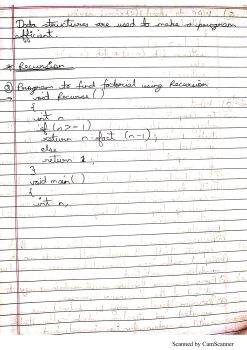 Data structures are used to make a program
efficient.
* Recursion
Program to find factorial using Recursion
void Recurse()
{
int n
if (n>=1)
return n fact (n-1);
else
return 1;
}
void main()
{
int n,
Scanned by CamScanner